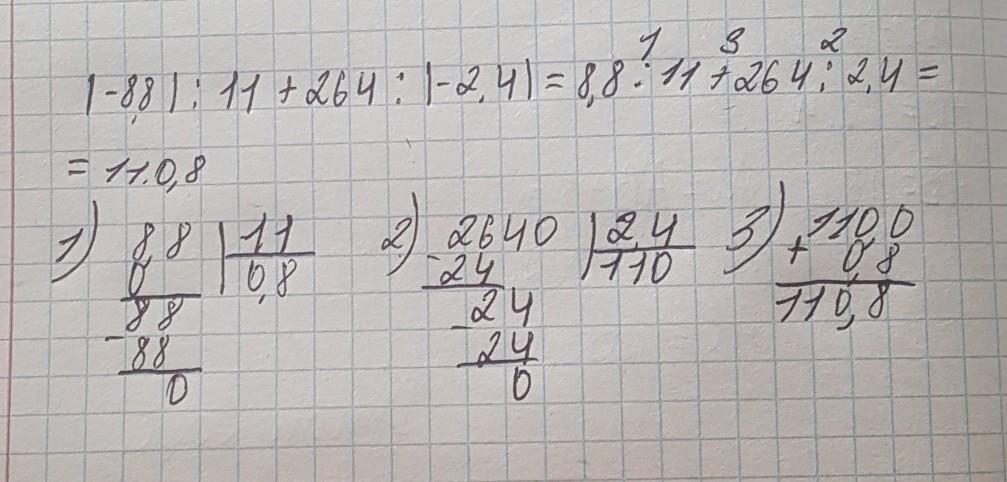 1 3 2
|-8,8| : 11 + 264 : |-2,4| = 8,8 : 11 + 264 : 2,4 =
= 110,8
1) 8,8 | 11 2) - 2640 | 2,4 3) 110,0
0 0,8 24 110 + 0,8
- 88 - 24 110,8
88 24
0 0